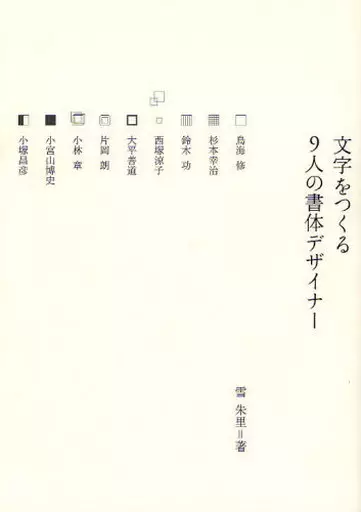 文字をつくる
9人の書体デザイナー
鳥海 修
杉本幸治
鈴木 功
西塚涼子
大平善道
片岡 朗
小林 章
小宮山博史
小塚昌彦
雪 朱里=著